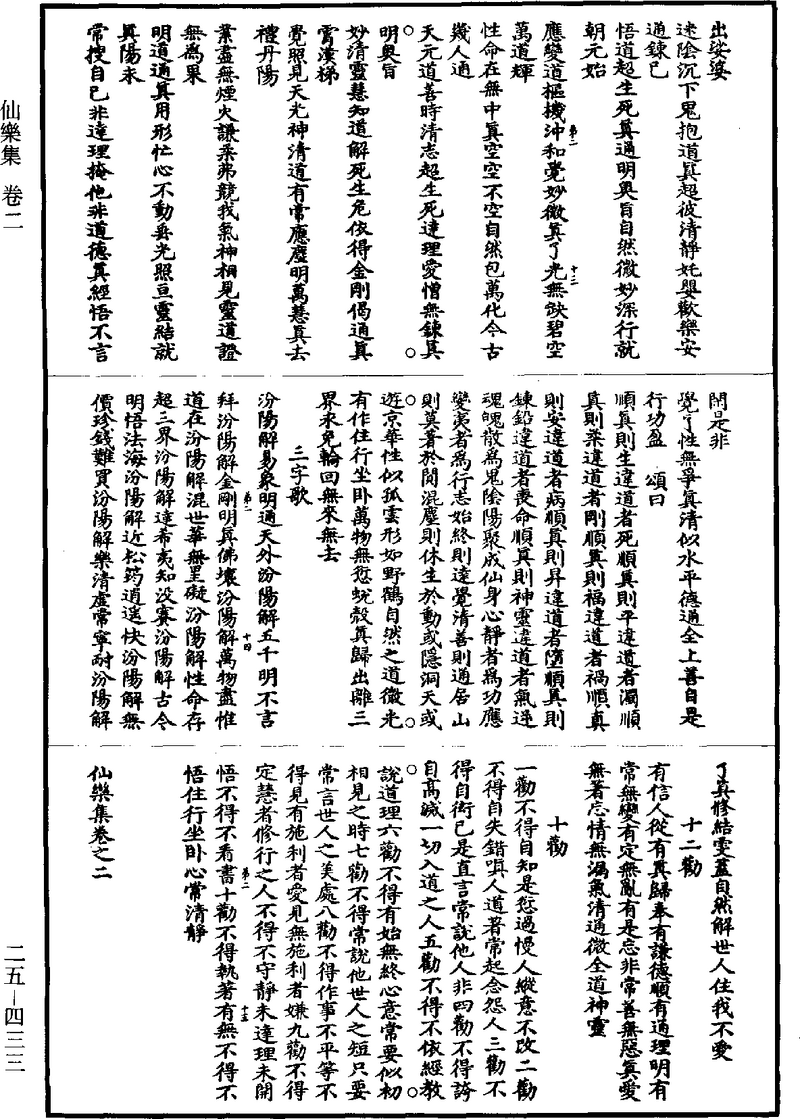 仙樂集 卷二
出娑婆
迷陰沉下鬼抱道眞超彼清靜姹嬰歡樂安
通鍊巳
悟道超生死眞通明奧旨自然微妙深行就
朝元始
應變道樞機沖和覺妙微眞了光無缺碧空
萬道輝
性命在無中眞空空不空自然包萬化今古
幾人通
天元道善時清志超生死達理愛憎無鍊眞
明奧旨
妙清靈慧知道解死生危依得金剛偈通眞
雲漢梯
覺照見天光神清道有常應塵明萬慧眞去
禮丹陽
業盡無煙火謙柔弗競我氣神相見靈道證
無爲果
明道通眞用形忙心不動垂光照亘靈結就
眞陽汞
常搜自巳非違理掩他非道德眞經悟不言
第二
十三
閑是非
覺了性無爭眞清似水平德通全上善自是
行功盈 頌曰
順眞則生違道者死順眞則平違道者濁順
眞則柔違道者剛順眞則福違道者禍順眞
則安違道者病順眞則昇違道者墮順眞則
鍊鉛違道者喪命順眞則神靈違道者氣逆
魂魄散爲鬼陰陽聚成仙身心靜者爲功應
變夷者爲行志始終則達覺清善則通居山
則莫著於閑混塵則休生於動或隱洞天或
遊京華性似孤雲形如野鶴自然之道微光
有作住行坐卧萬物無愆蛻殻眞歸出離三
界永免輪回無來無去
三字歌
汾陽解易象明通天外汾陽解五千明不言
拜汾陽解金剛明眞佛壞汾陽解萬物盡惟
道在汾陽解混世華無罣礙汾陽解性命存
超三界汾陽解達希夷知没賽汾陽解古今
明悟法海汾陽解近松筠逍遥快汾陽解無
價珍錢難買汾陽解樂清虛常寧耐汾陽解
第二
十四
了眞修結雯蓋自然解世人住我不愛
十二勸
有信人從有眞歸奉有謙德順有通理明有
常無變有定無亂有是忘非常善無惡眞愛
無著忘情無漏氣清通微全道神靈
十勸
一勸不得自知是愆過慢人縱意不改二勸
不得自失錯嗔人道著常起念怨人三勸不
得自衒己是直言常說他人非四勸不得誇
自高滅一切入道之人五勸不得不依經教
說道理六勸不得有始無終心意常要似初
相見之時七勸不得常說他世人之短只要
常言世人之美處八勸不得作事不平等不
得見有施利者愛見無施利者嫌九勸不得
定慧者修行之人不得不守靜未達理未開
悟不得不看書十勸不得執著有無不得不
悟住行坐卧心常清靜
第二
十五
仙樂集卷之二
二五—四三三